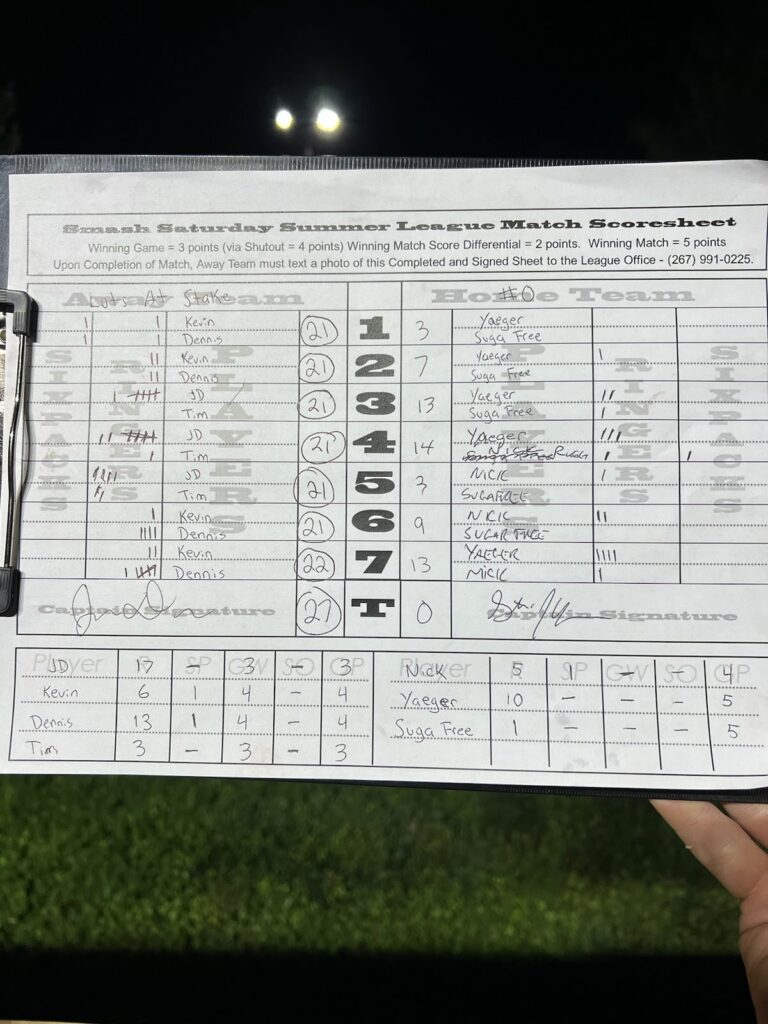 Smash Saturday Summer League Match Scoresheet
Winning Game = 3 points (via Shutout = 4 points) Winning Match Score Differential = 2 points. Winning Match = 5 points
Upon Completion of Match, Away Team must text a photo of this Completed and Signed Sheet to the League Office - (267) 991-0225.
Away Team Lots At Stake Home Team #0
SIXPACKS RINGERS PLAYERS PLAYERS RINGERS SIXPACKS
Kevin 21 1 3 Yaeger
Dennis Suga Free
Kevin 21 2 7 Yaeger
Dennis Suga Free
JD 21 3 13 Yaeger
Tim Suga Free
JD 21 4 14 Yaeger
Tim
JD 21 5 3 NICK
Tim SUGAFREE
Kevin 21 6 9 NICK
Dennis SUGAR FREE
Kevin 22 7 13 YAEGER
Dennis NICK
Captain Signature 27 T 0 Captain Signature
Player R SP GW SO GP Player R SP GW SO GP
JD 17 - 3 - 3 Nick 5 1 - - 4
Kevin 6 1 4 - 4 Yaeger 10 - - - 5
Dennis 13 1 4 - 4 Suga Free 1 - - - 5
Tim 3 - 3 - 3